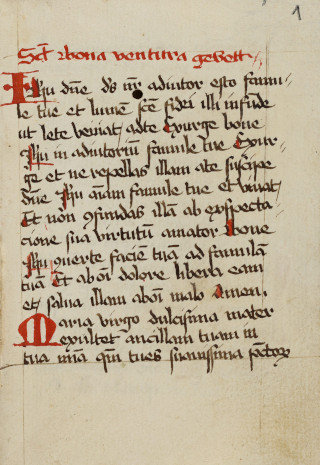 1
Sct bona ventura gebett
Ihu dne ds nr adiutor esto famu-
le tue et lumē scē fidei illi infūde
ut lete veniat adte Exurge bone
Ihu in adiutoriū famule tue Exur-
ge et ne repellas illam ate suscipe
dne Ihu aīam famule tue et viuat
Et non 9fundas illā ab expecta
cione sua virtutum amator bone
Ihu auerte faciē tuā ad famulā
tuā Et aboī dolore libera eam
et salua illam aboī malo Amen
Maria virgo dulcissima mater
exultet ancillam tuam in
tua mīa qm tu es suauissima